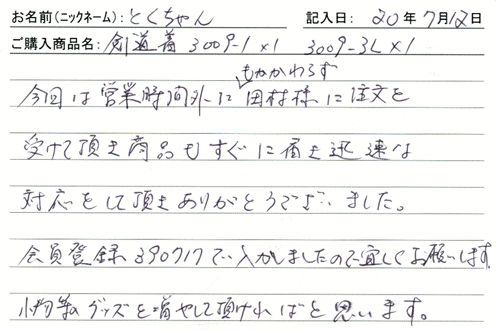 お名前(ニックネーム):とくちゃん 記入日: 20年7月12日
ご購入商品名: 剣道着 3009-1×1 3009-3L×1
もかかわらず
今回は営業時間外に田村様に注文を
受けて頂き商品もすぐに届き迅速な
対応をして頂きありがとうございました。
会員登録 390717で入りましたので宜しくお願いします
小物等のグッズを増やして頂ければと思います。